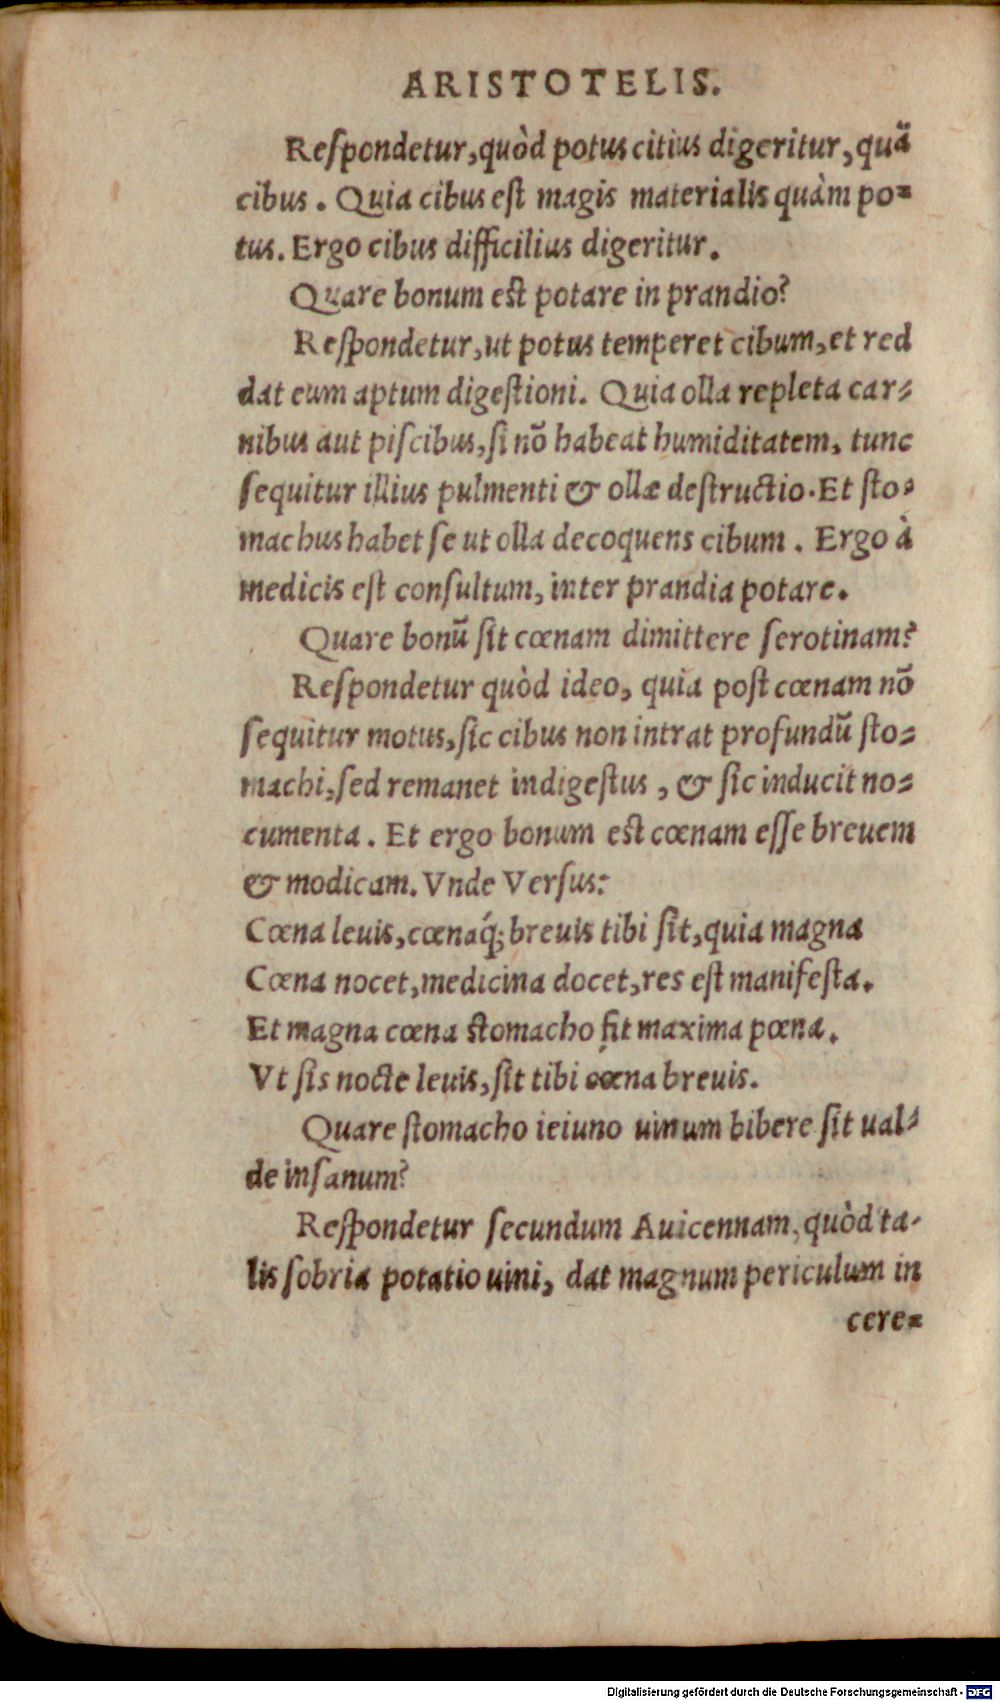 ARISTOTELIS.
Reſpondetur, quòd potus citius digeritur, quã
cibus. Quia cibus eſt magis materialis quàm po=
tus. Ergo cibus difficilius digeritur.
Quare bonum eſt potare in prandio?
Reſpondetur, ut potus temperet cibum, et red
dat eum aptum digeſtioni. Quia olla repleta car=
nibus aut piſcibus, ſi nõ habeat humiditatem, tunc
ſequitur illius pulmenti & ollæ deſtructio. Et ſto=
machus habet ſe ut olla decoquens cibum. Ergo à
medicis eſt conſultum, inter prandia potare.
Quare bonũ ſit cœnam dimittere ſerotinam?
Reſpondetur quòd ideo, quia poſt cœnam nõ
ſequitur motus, ſic cibus non intrat profundũ ſto=
machi, ſed remanet indigeſtus, & ſic inducit no=
cumenta. Et ergo bonum eſt cœnam eſſe breuem
& modicam. Vnde Verſus:
Cœna leuis, cœnaq́; breuis tibi ſit, quia magna
Cœna nocet, medicina docet, res eſt manifeſta.
Et magna cœna ſtomacho fit maxima pœna.
Vt ſis nocte leuis, ſit tibi cœna breuis.
Quare ſtomacho ieiuno uinum bibere ſit ual=
de inſanum?
Reſpondetur ſecundum Auicennam, quòd ta-
lis ſobria potatio uini, dat magnum periculum in
cere=
Digitalisierung gefördert durch die Deutsche Forschungsgemeinschaft - DFG